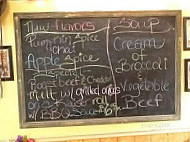 New Flavors
Pumpkin Spice
Chai
Apple Spice
Special
Roast Beef & Cheddar
Melt w/ grilled onions
on a Kaiser roll
w/ BBQ Sauce
Soup
Cream
of
Broccoli
&
Vegetable
Beef